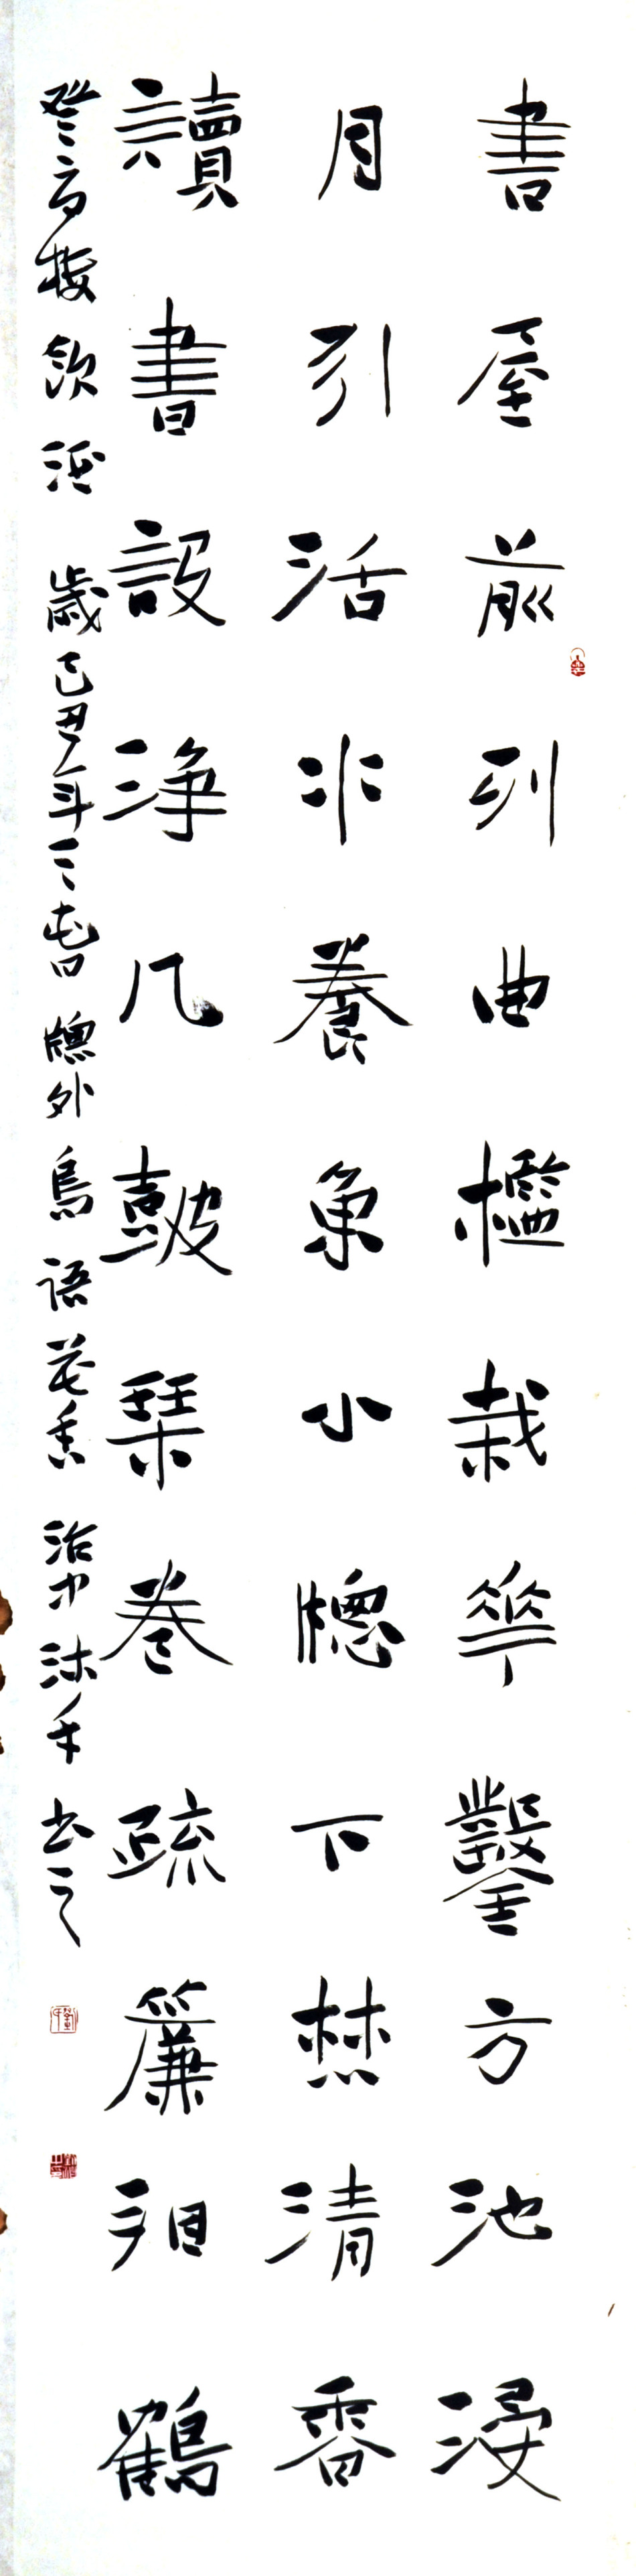 書屋前列曲檻栽華鑿方池浸
月引活水養魚小牕下焚清香
讀書設淨几鼓琹卷疏簾相鶴
登高樓飲酒 歲己丑年三春 牕外鳥語花香 沐手書之